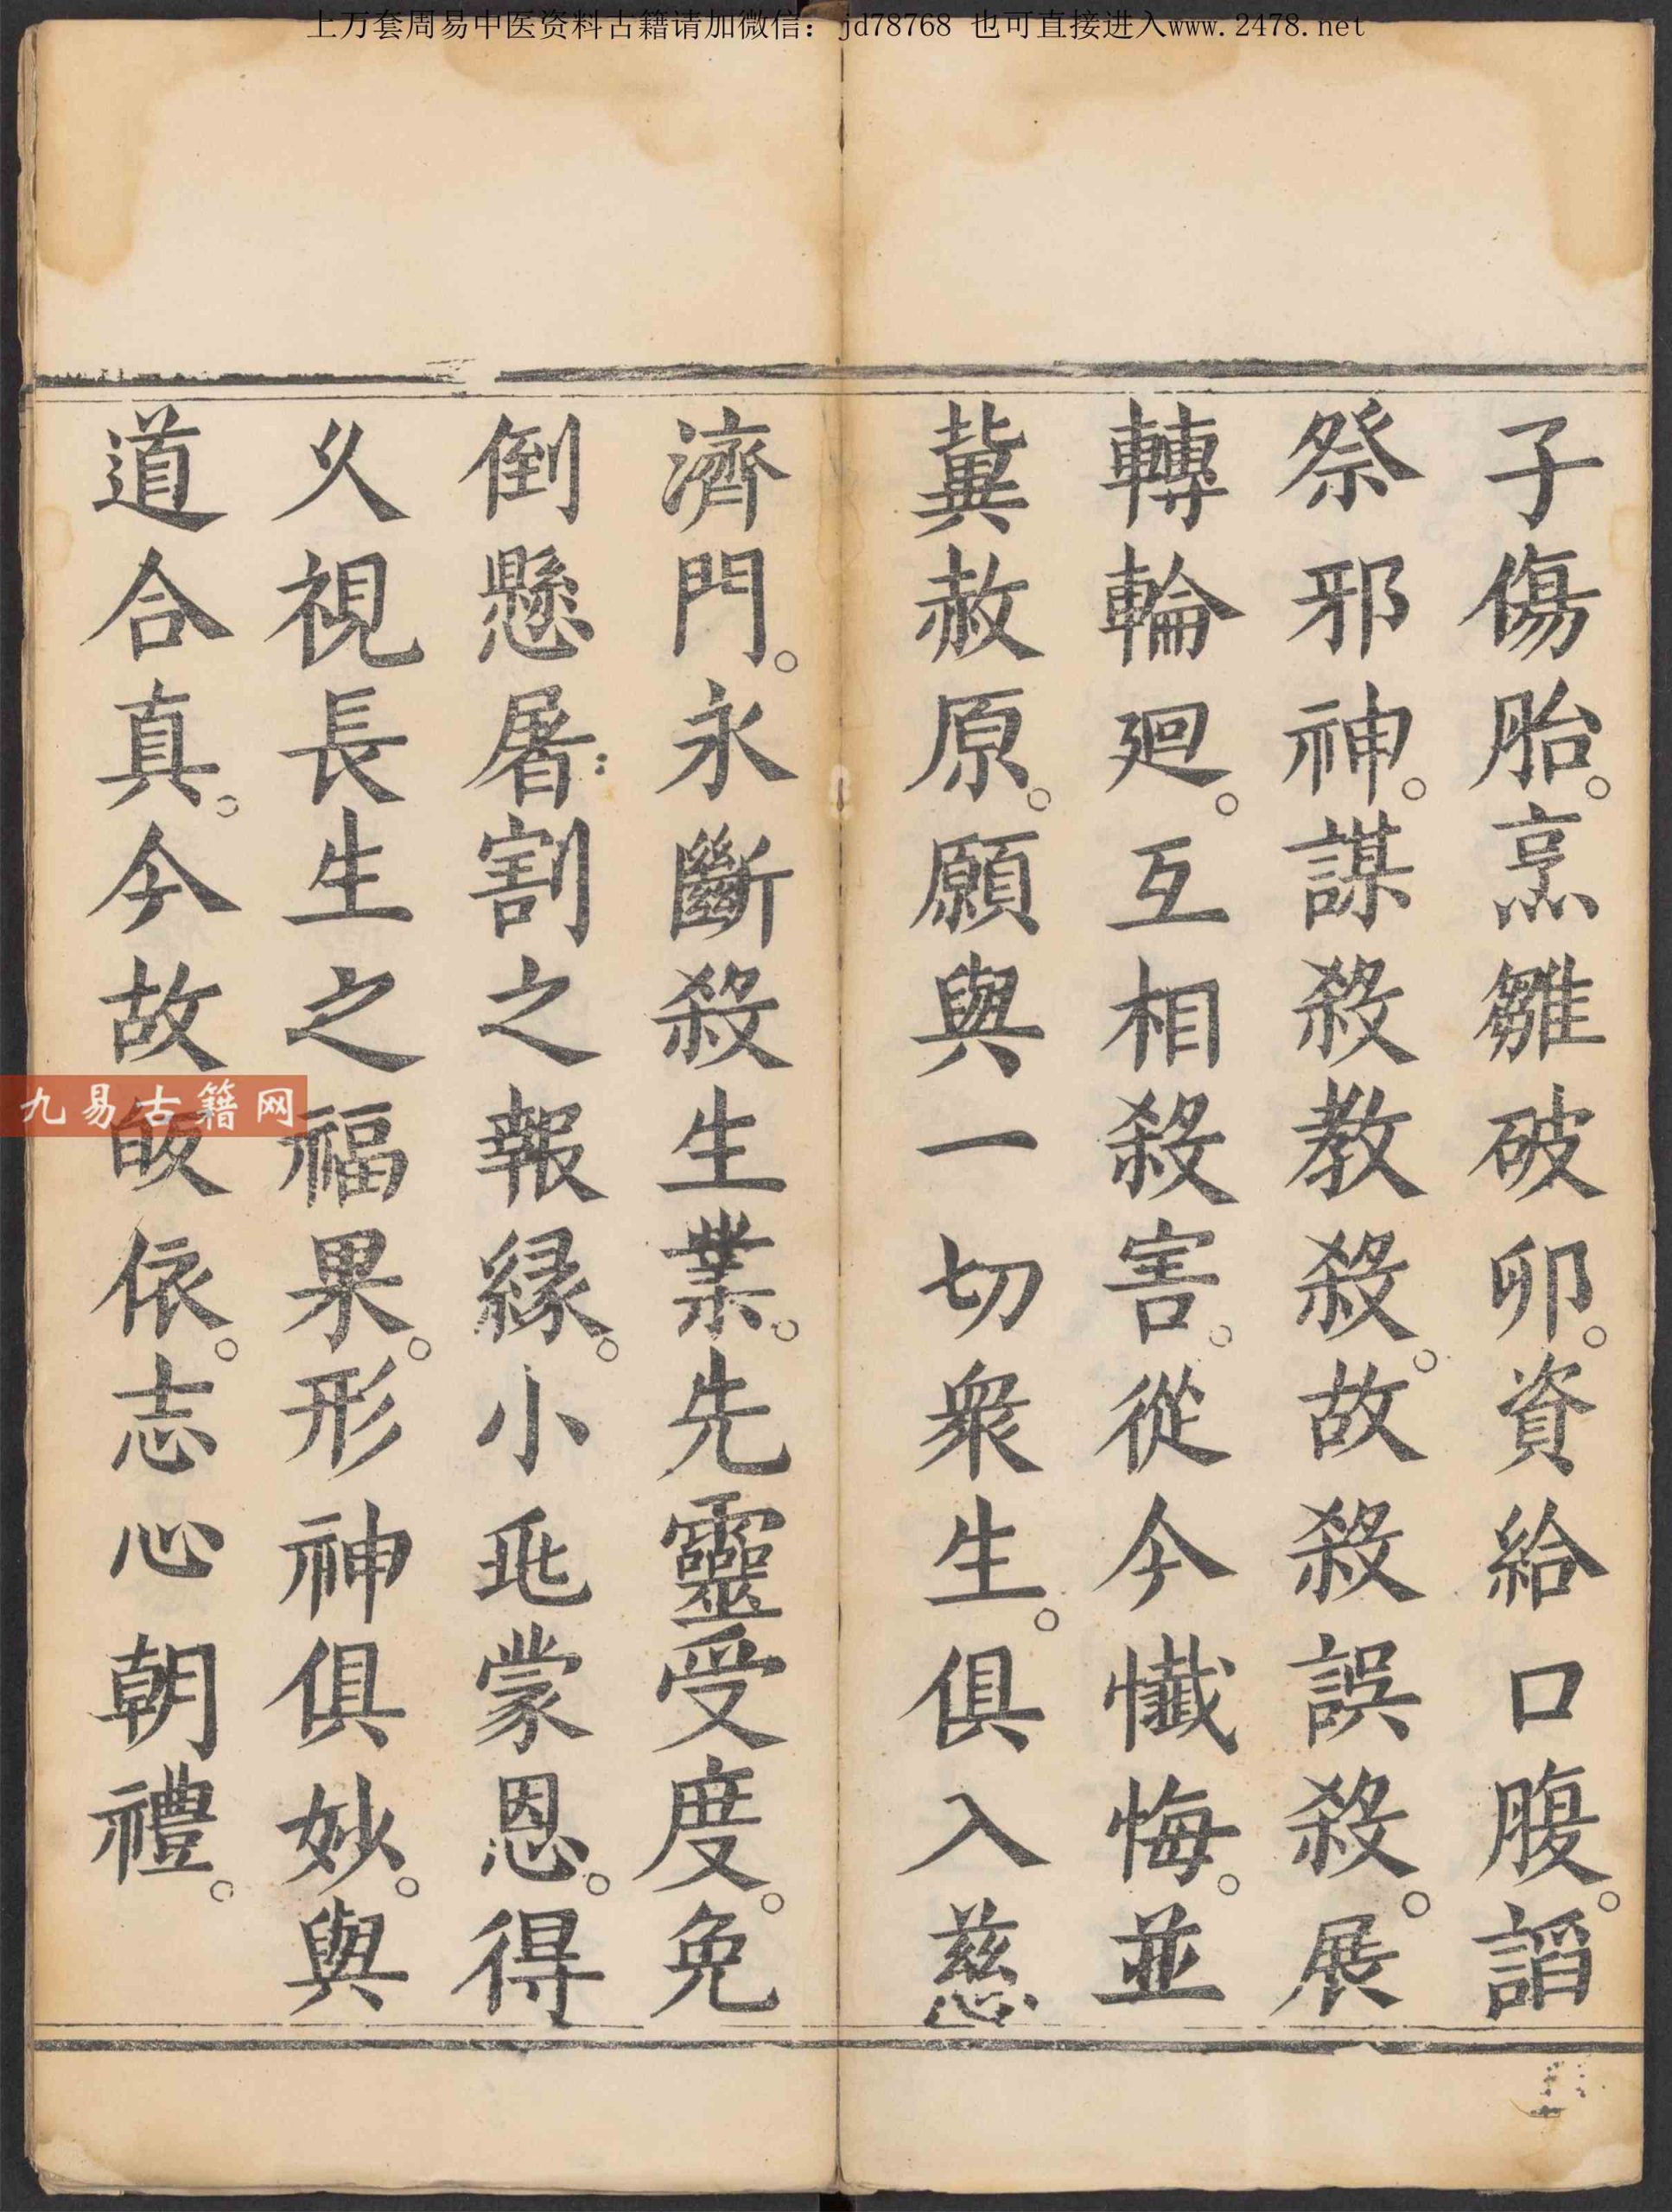 上万套周易中医资料古籍请加微信：jd78768 也可直接进入www.2478.net
子傷胎。烹雛破卵。資給口腹。謟
祭邪神。謀殺教殺。故殺誤殺。展
轉輪廻。互相殺害。從今懺悔。並
冀赦原。願與一切衆生。俱入慈
濟門。永斷殺生業。先靈受度。免
倒懸屠割之報緣。小兆蒙恩。得
久視長生之福果。形神俱妙。與
道合真。今故皈依。志心朝禮。
九易古籍网